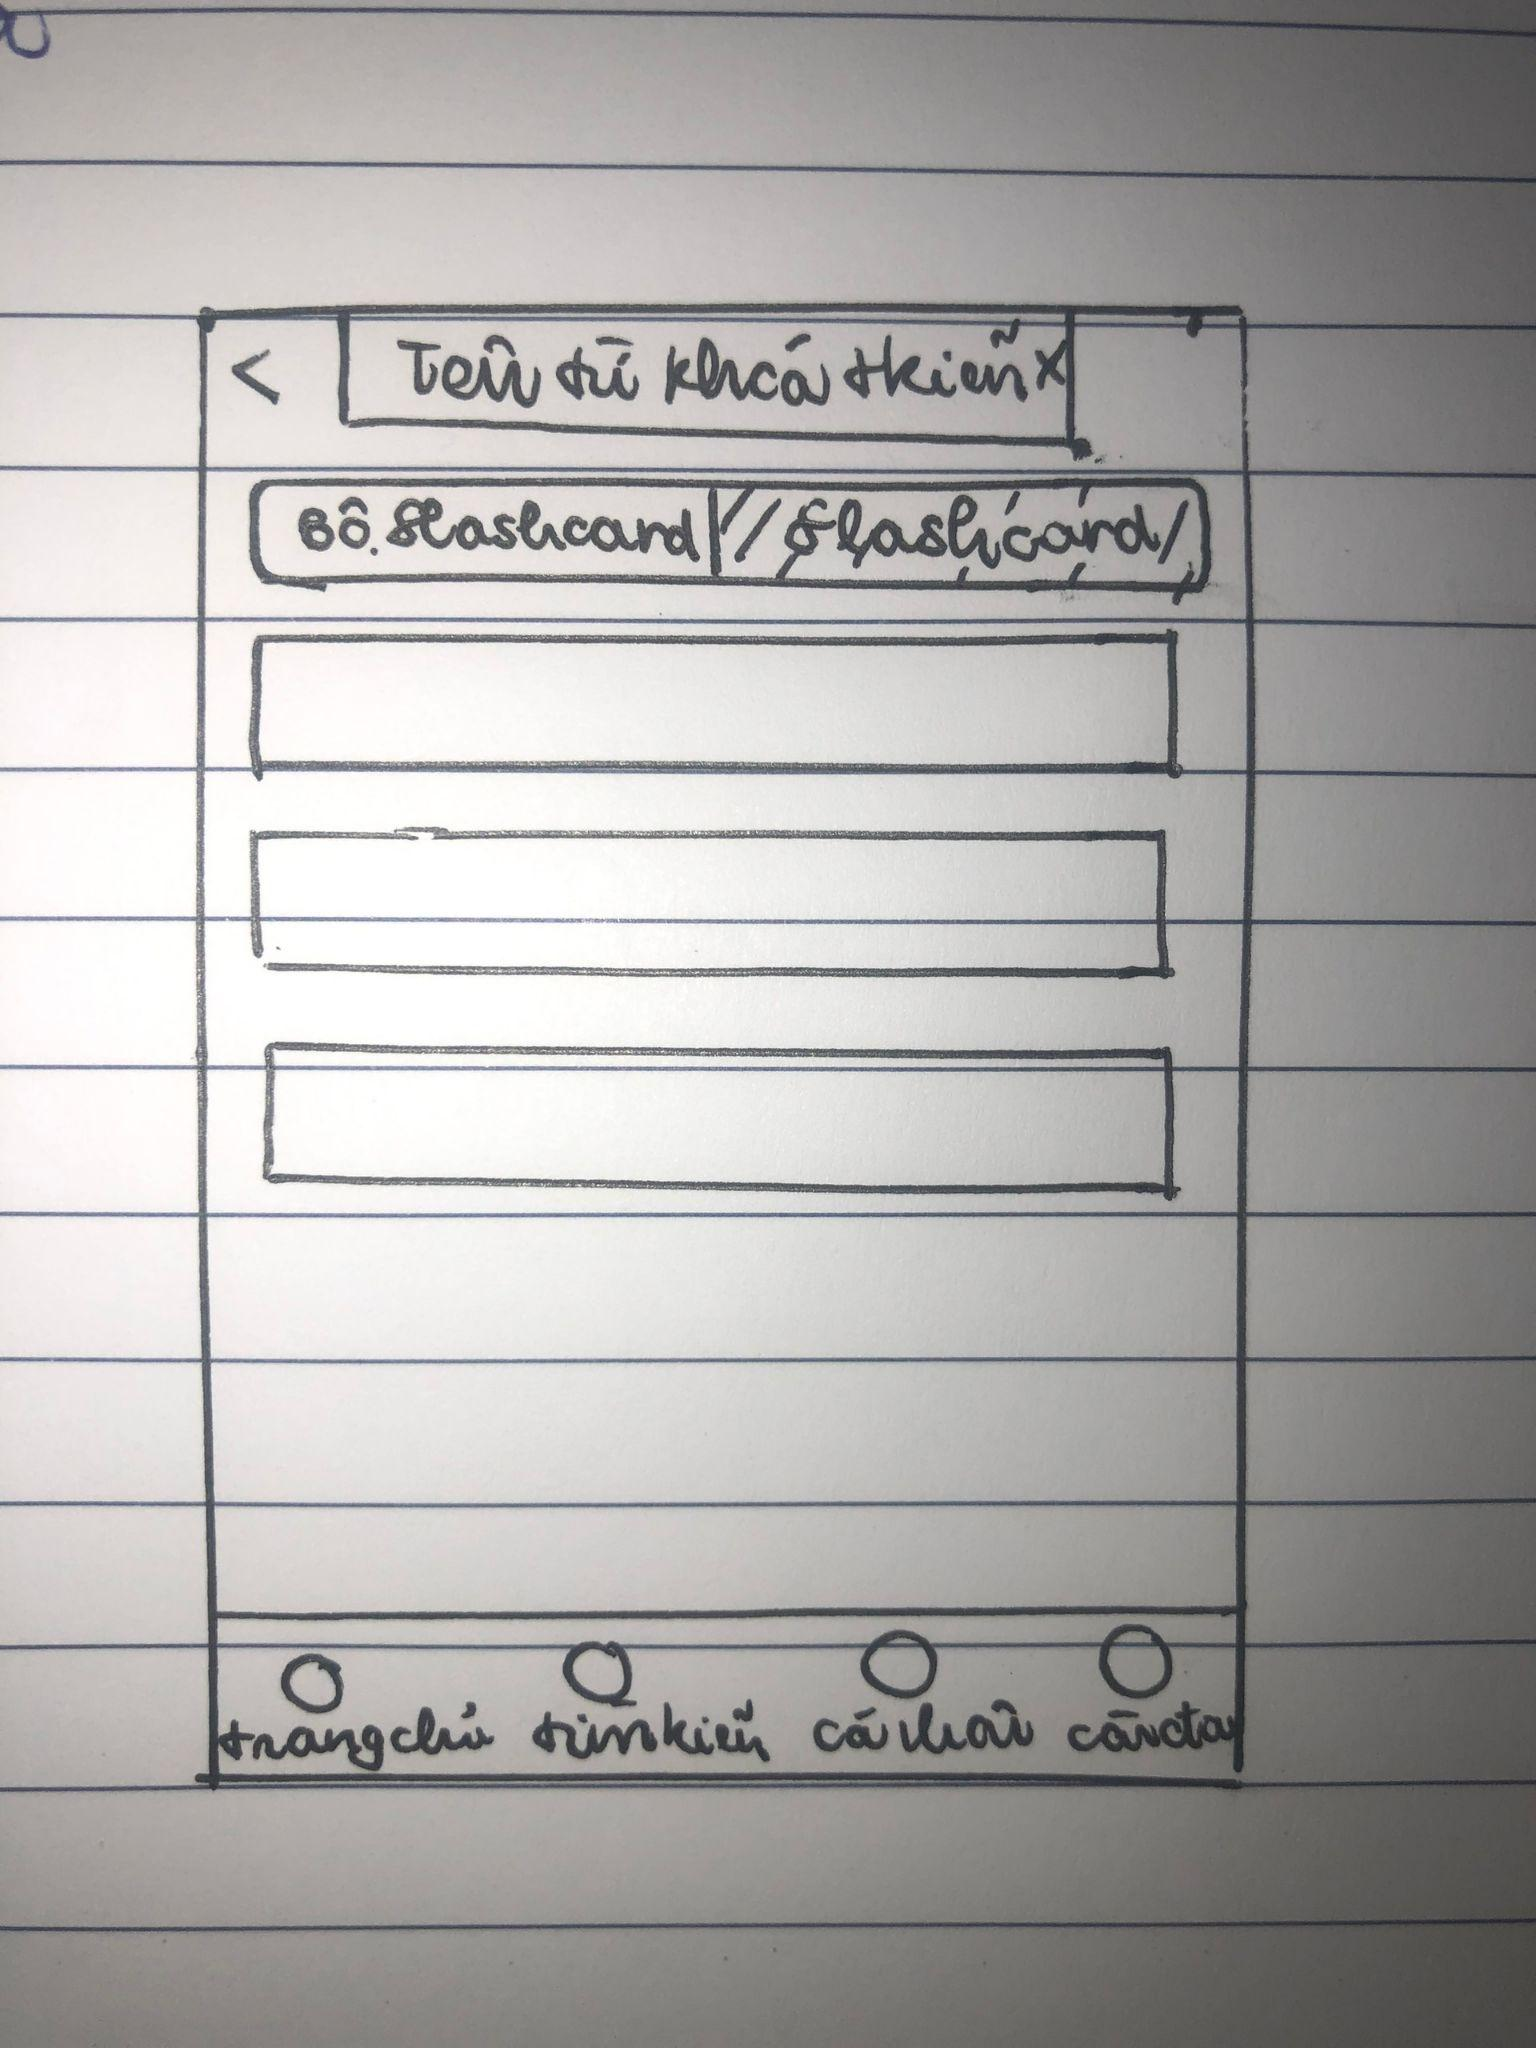 < Tên từ khoá tkiếm x
Bộ flashcard flashcard
trang chủ tìm kiếm cá nhân cài đặt